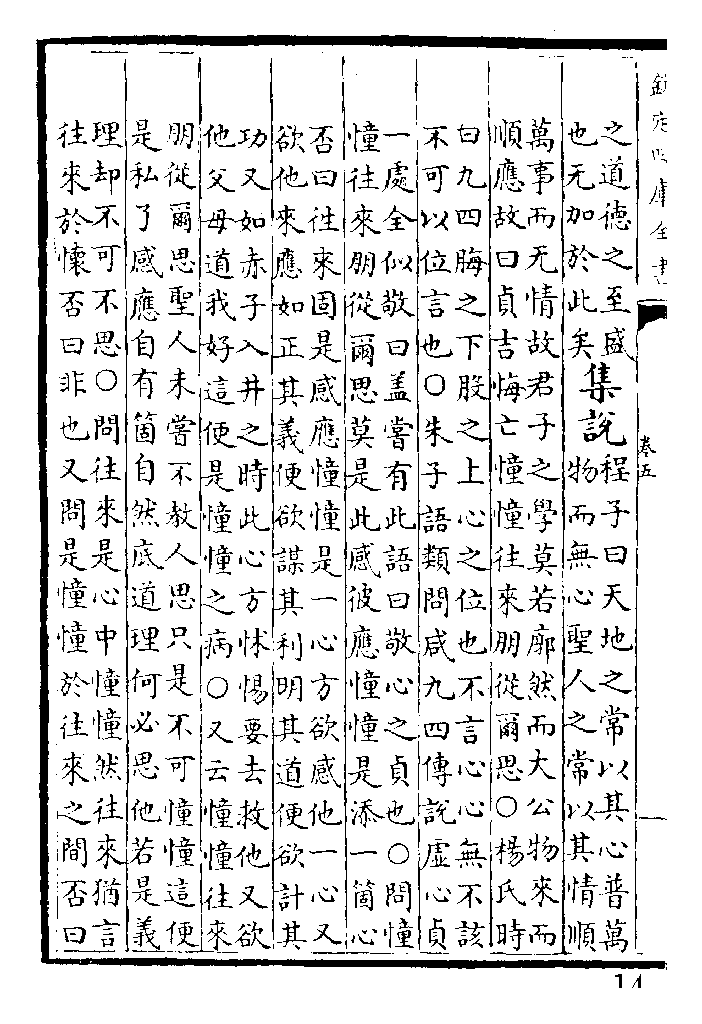 欽定四庫全書
卷五
之道德之至盛
也无加於此矣
集說
程子曰天地之常以其心普萬
物而無心聖人之常以其情順
萬事而无情故君子之學莫若廓然而大公物來而
順應故曰貞吉悔亡憧憧往來朋從爾思○楊氏時
曰九四脢之下股之上心之位也不言心心無不該
不可以位言也○朱子語類問咸九四傳說虛心貞
一處全似敬曰盖嘗有此語曰敬心之貞也○問憧
憧往來朋從爾思莫是此感彼應憧憧是添一箇心
否曰徃來固是感應憧憧是一心方欲感他一心又
欲他來應如正其義便欲謀其利明其道便欲計其
功又如赤子入井之時此心方怵惕要去救他又欲
他父母道我好這便是憧憧之病○又云憧憧往來
朋從爾思聖人未嘗不教人思只是不可憧憧這便
是私了感應自有箇自然底道理何必思他若是義
理却不可不思○問往來是心中憧憧然往來猶言
往來於懷否曰非也又問是憧憧於往來之間否曰
14